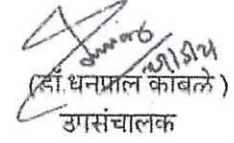 (डॉ.धनपाल कांबळे)
उपसंचालक